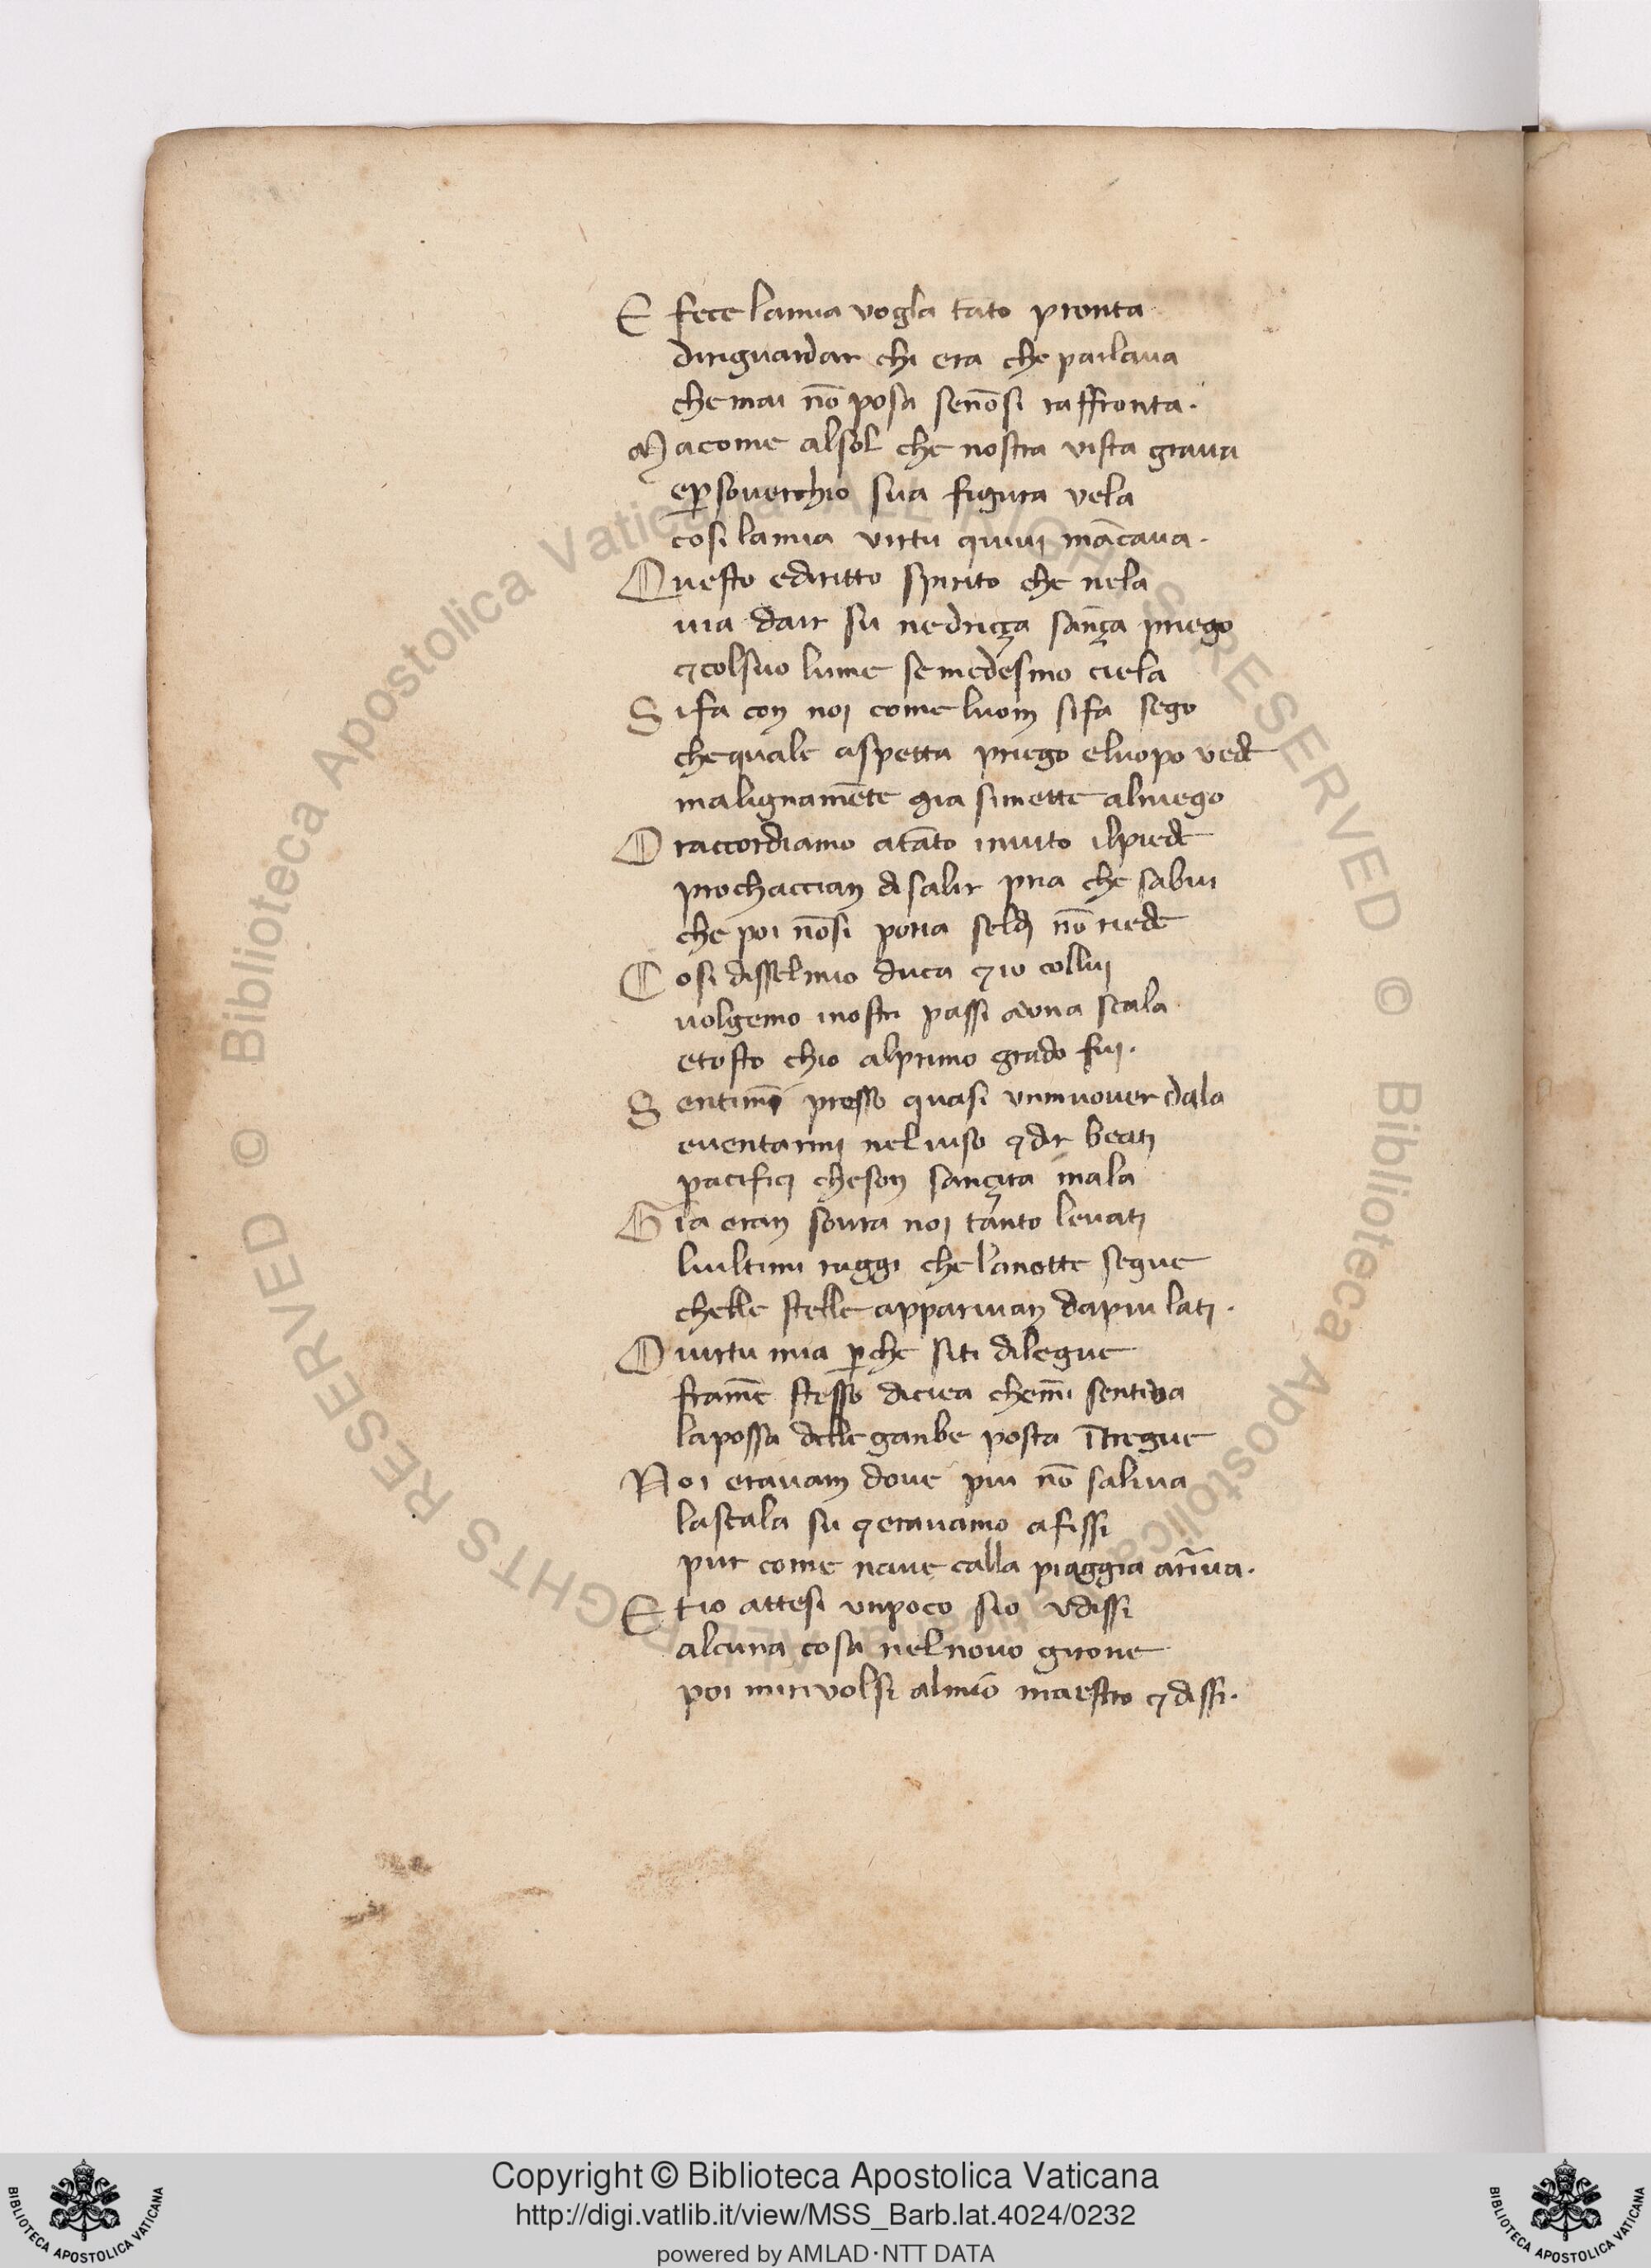 E fece lamia vogla tāto pronta
diriguardar chi era che parlaua
che mai nō posa senōsi raffronta.
Ma come alsol che nostra vista graua
eꝑ souerchio sua figura vela
cosi lamia virtu quiui mācaua.
Questo ediritto spirito che nela
uia dair su nedriçça sānça priego
⁊ colsuo lume semedesmo ciela
Sifa con noi comeluom sifa sego
chequale aspetta priego eluopo vede
malignamēte gia simette alniego
Oraccordiamo atāto inuito ilpiede
prochaccian di salir pria che sabui
che poi nōsi poria seldi nō riede
Cosi disselmio duca ⁊ io collui
uolgemo inostri passi aduna scala
etosto chio alprimo grado fui.
Sentimi presso quasi unmuouer dala
euentarmi neluiso ⁊ dir beati
pacifici cheson sançira mala
Gia eran soura noi tanto leuati
liultimi raggi chelanotte segue
chelle stelle appariuan dapiu lati.
O uirtu mia ꝑche siti dilegue
framē stesso diciea chemī sentiua
lapossa delleganbe posta ītregue
Noi erauam doue piu nō saliua
lascala su ⁊ erauamo afissi
pur come naue calla piaggia arīua.
Etio attesi unpoco sio udissi
alcuna cosa nelnouo girone
poi miriuolsi almio maestro ⁊ dissi.
© Biblioteca Apostolica Vaticana ALL RIGHTS RESERVED © Biblioteca Apostolica Vaticana ALL RIGHTS RESERVED
Copyright © Biblioteca Apostolica Vaticana
http://digi.vatlib.it/view/MSS_Barb.lat.4024/0232
powered by AMLAD·NTT DATA
BIBLIOTECA APOSTOLICA VATICANA
BIBLIOTECA APOSTOLICA VATICANA